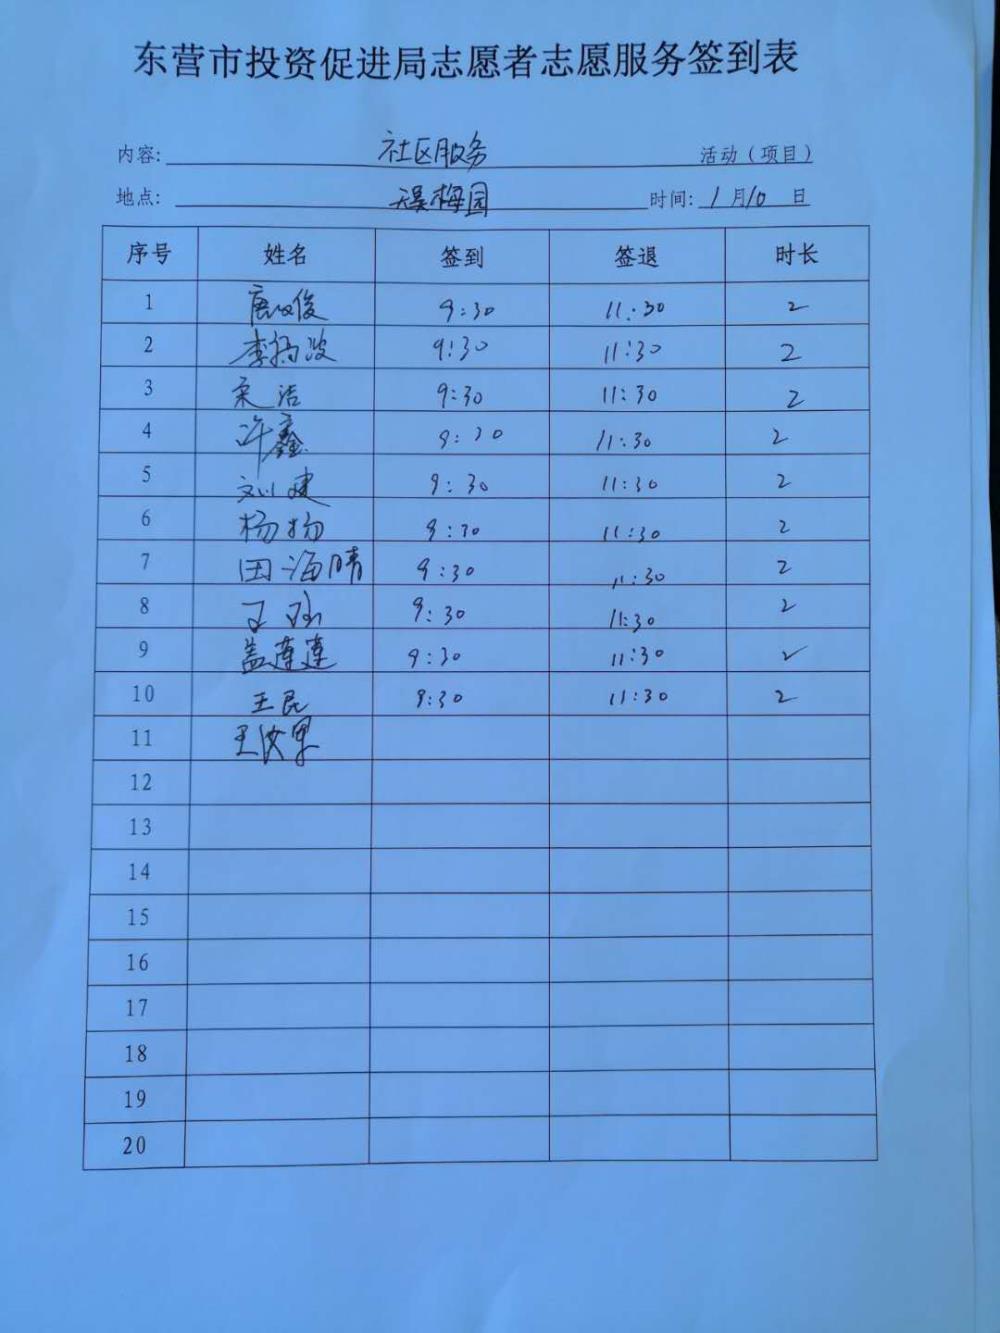 东营市投资促进局志愿者志愿服务签到表
内容: 社区服务 活动（项目）
地点: 梅园 时间: 1月10日
序号 姓名 签到 签退 时长
1 唐俊 9:30 11:30 2
2 李波 9:30 11:30 2
3 洁 9:30 11:30 2
4 许鑫 9:30 11:30 2
5 刘建 9:30 11:30 2
6 杨扬 9:30 11:30 2
7 田海晴 9:30 11:30 2
8 王 9:30 11:30 2
9 盖莲莲 9:30 11:30 2
10 王民 9:30 11:30 2
11 王汝军
12
13
14
15
16
17
18
19
20